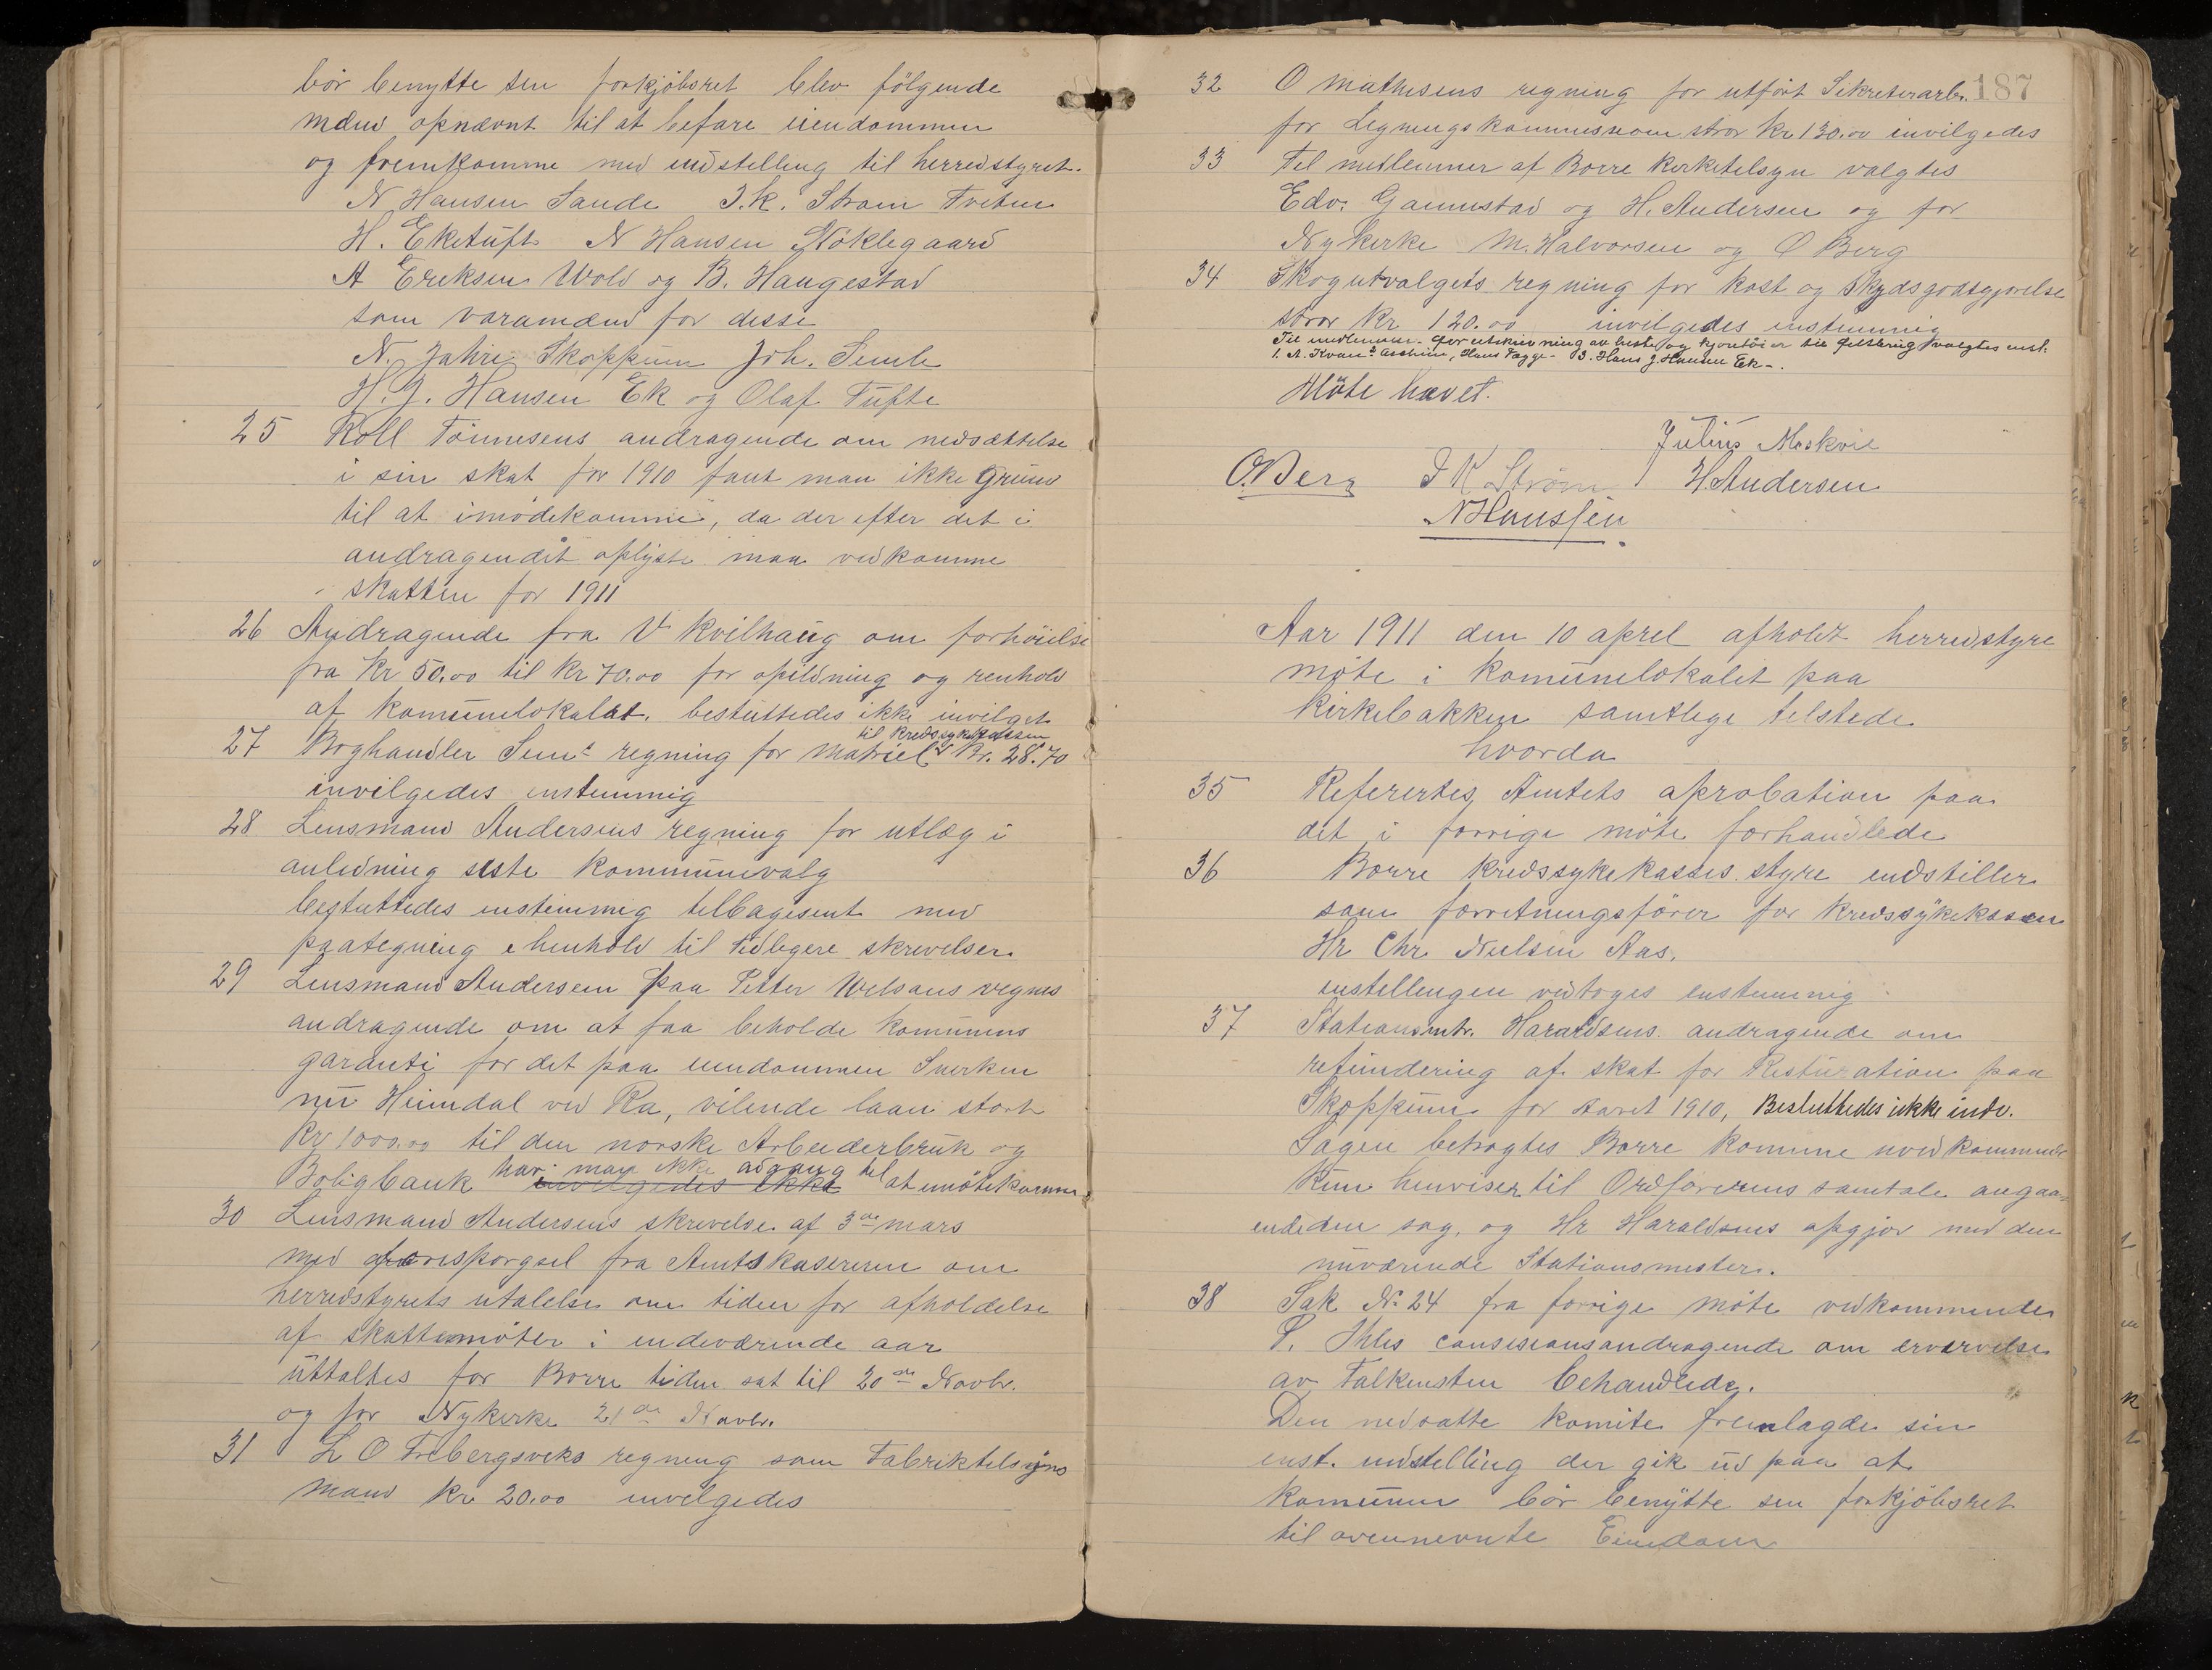 bör benytte sin forkjöbsret blev fölgende
mænd opnævnt til at befare eiendommen
og fremkomme med indstelling til herredstyret.
N Hansen Sande J.K. Strøm Tveten
H. Eketuft N Hansen Nöklegaard
A Eriksen Wold og B. Haugestad
som varamænd for desse
N. Jahre Skoppum Joh. Semb
H.J. Hansen Ek og Olaf Tufte
25 Koll Tönnesens andragende om nedsættelse
i sin skat for 1910 fant man ikke grund
til at imödekomme, da der efter det i
andragendet oplyste maa vedkomme
skatten for 1911
26 Andragende fra V Kvilhaug om forhöielse
fra Kr 50.00 til Kr 70.00 for opildning og renhold
af komunelokalet. besluttedes ikke invilget
til Kredssykekassen
27 Boghandler Sem's regning for matriel Kr. 28.70
invilgedes enstemmig
28 Lensmand Andersens regning for utlæg i
anledning siste kommunevalg
besluttedes enstemmig telbagesent med
paategning i henhold til tidligere skrevelser.
29 Lensmand Andersen paa Petter Welsons vegnes
andragende om at faa beholde komunens
garanti for det paa eiendommen Snerken
nu Heimdal ved Ra, vilende laan stort
Kr 1000.00 til den norske Arbeiderbruk og
Boligbank har man ikke adgang til at imötekomme
invilgedes ikke
30 Lensmand Andersens skrevelse af 3de mars
med forespörgsel fra Amtskasereren om
herredstyrets utalelse om tiden for afholdelse
af skattemöter i indeværende aar
uttaltes for Borre tiden sat til 20de Novbr.
og for Nykerke 21de Novbr.
31 L O Frebergsviks regning som Fabriktelsyns
mand Kr 20.00 invelgedes
187
32 O Mathisens regning for utfört Sekreterarb.
for Legningskommissionen stror Kr 130.00 invilgedes
33 Tel medlemmer af Borre Kerketelsyn valgtes
Edv. Gannestad og H. Andersen og for
Nykerke M. Halvorsen og O Berg
34 Skogutvalgets regning for kost og skydsgodtgjörelse
stror Kr 120.00 invilgedes enstemmig
Til medlemmer for utskrivning av heste og kjøretöier til feltbrug valgtes enst.
1. A. Kvan 2. Hans Fagge - 3. Hans J. Hansen Ek -.
Möte hævet.
Julius Moskvil
O. Berg J K Strøm H. Andersen
N Hanssen
Aar 1911 den 10 aprel afholdt herredstyre
möte i komunelokalet paa
Kirkebakken samtlege telstede
hvorda
35 Referertes Amtets aprobation paa
det i forrige möte forhandlede
36 Borre Kredssykekasses styre endstiller
som forretningsförer for Kredssykekassen
Hr Chr. Nielsen Aas.
enstellengen vedtoges enstemmig
37 Stationsmtr. Haraldsens andragende om
refundering af skat for Resturation paa
Skoppum for Aaret 1910, Besluttedes ikke indv.
Sagen betragtes Borre komune uvedkommende
Kun henviser til Ordförerens samtale angaa-
ende den sag, og Hr Haraldsens opgjör med den
nuværende Stationsmester.
38 Sak No 24 fra forrige möte vedkommende
P. Ihles consesionsandragende om ervervelse
av Falkensten behandledes.
Den nedsatte komite fremlagde sin
enst. indstelling der gik ud paa at
komunen bör benytte sin forkjöbsret
til ovennevnte Eiendom